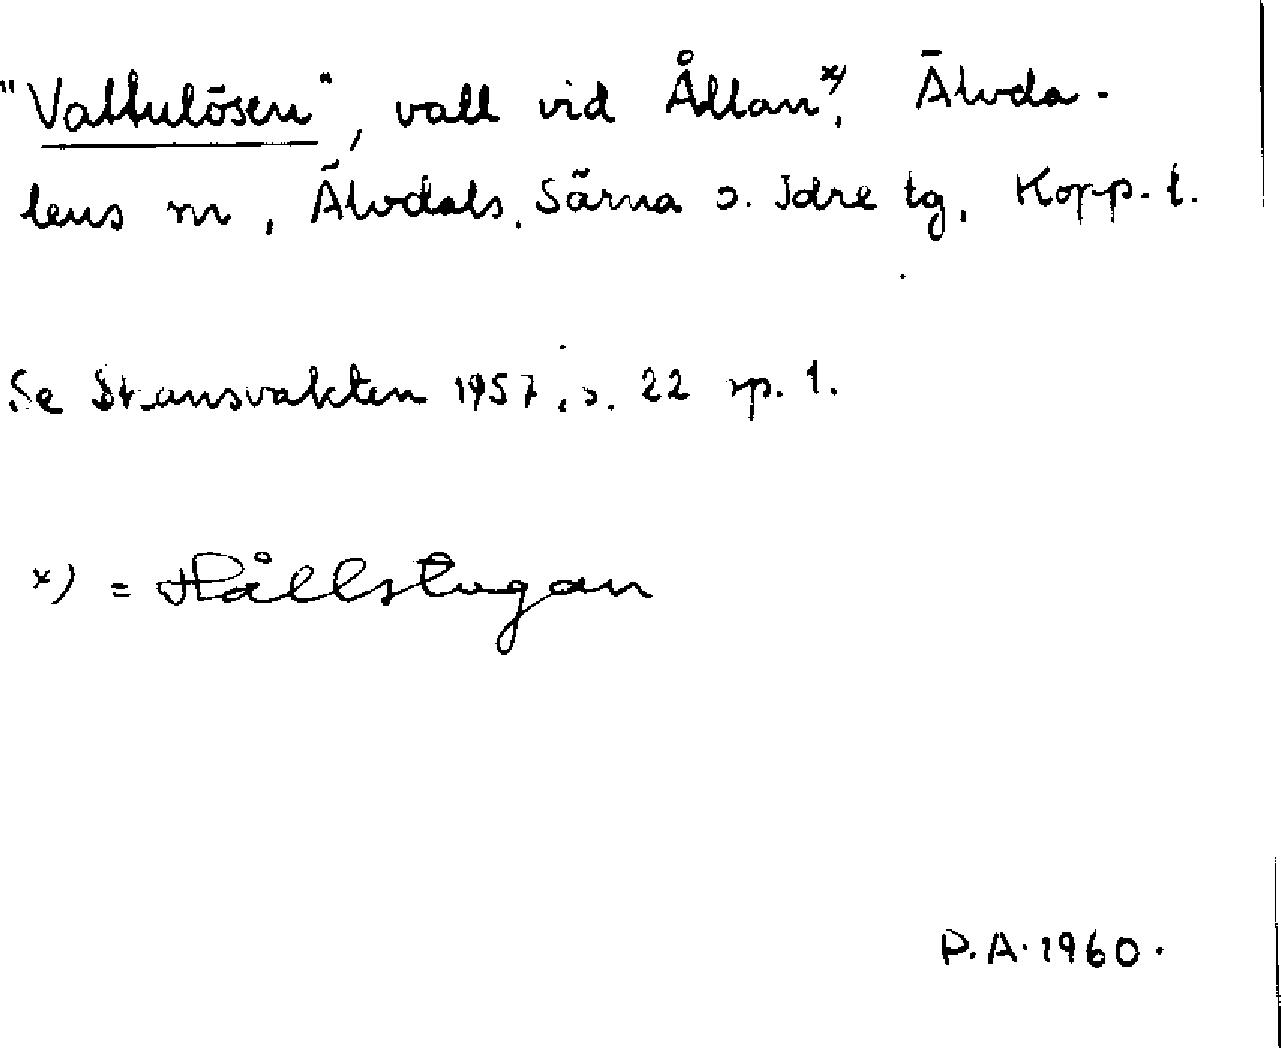 "Vattulösen", vall vid Ållan x), Älvda-
lens sn, Älvdals, Särna o. Idre tg, Kopp. l.
Se Skansvakten 1957, s. 22 sp. 1.
x) = Hållstugan
P.A. 1960.